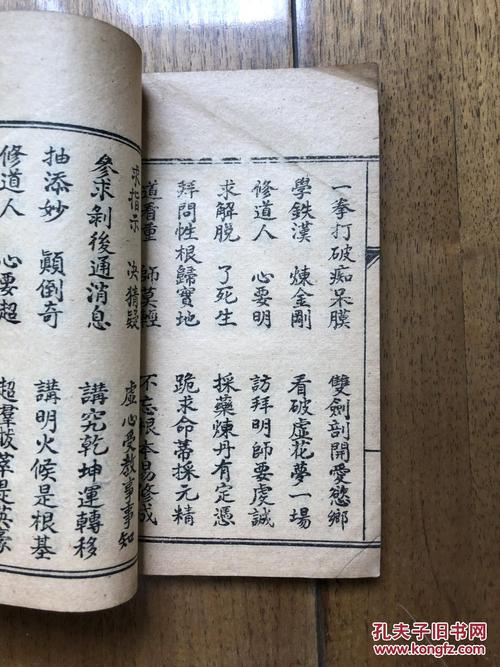 一拳打破痴呆膜　雙劍剖開愛慾鄉
學鉄漢　煉金剛　看破虛花夢一場
修道人　心要明　訪拜明師要虔誠
求解脫　了死生　採藥煉丹有定憑
拜問性根歸寶地　跪求命蒂採元精
道看重　師莫輕　不忘根本易修成
求指示　决猜疑　虛心受教事事知
參求剝後通消息　講究乾坤運轉移
抽添妙　顛倒奇　講明火候是根基
修道人　心要超　超羣拔萃是英豪
孔夫子旧书网
www.kongfz.com